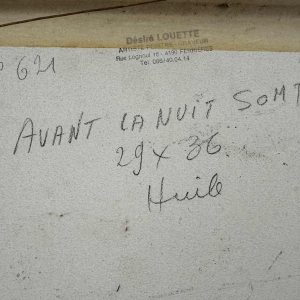 Désiré LOUETTE
ARTISTE PEINTRE - GRAVEUR
Rue Lognoul 16 - 4190 FERRIERES
Tél. 086/40.04.14
621
AVANT LA NUIT SOMT
29 x 36
Huile